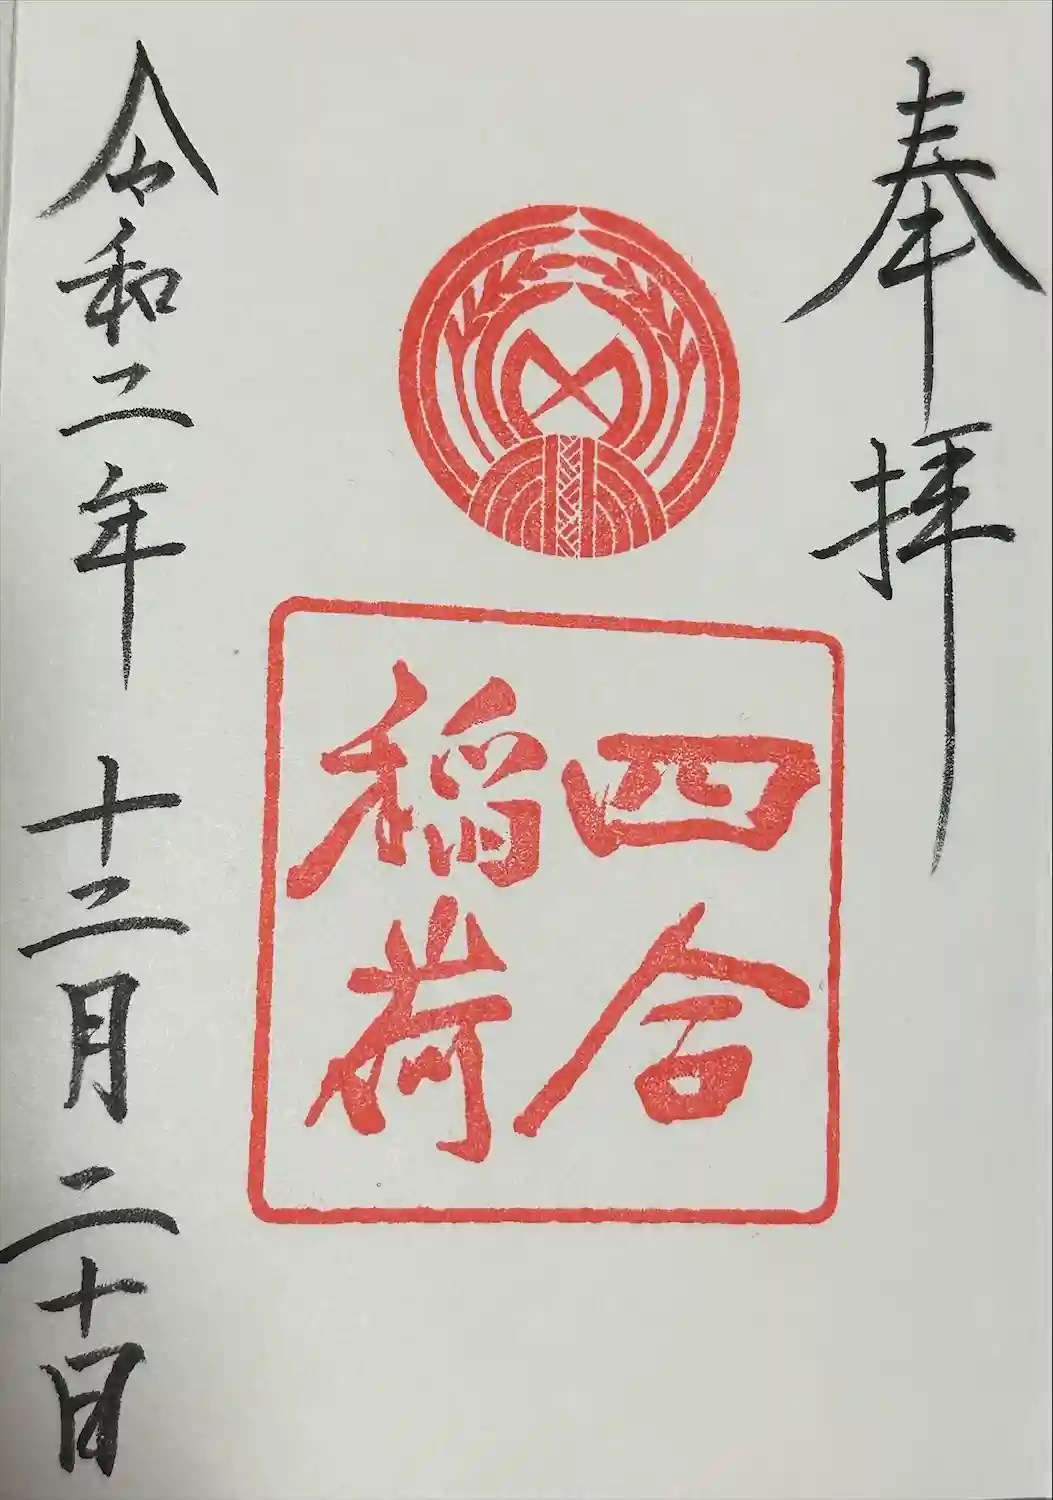 奉拝
四合
稲荷
令和二年十二月二十日